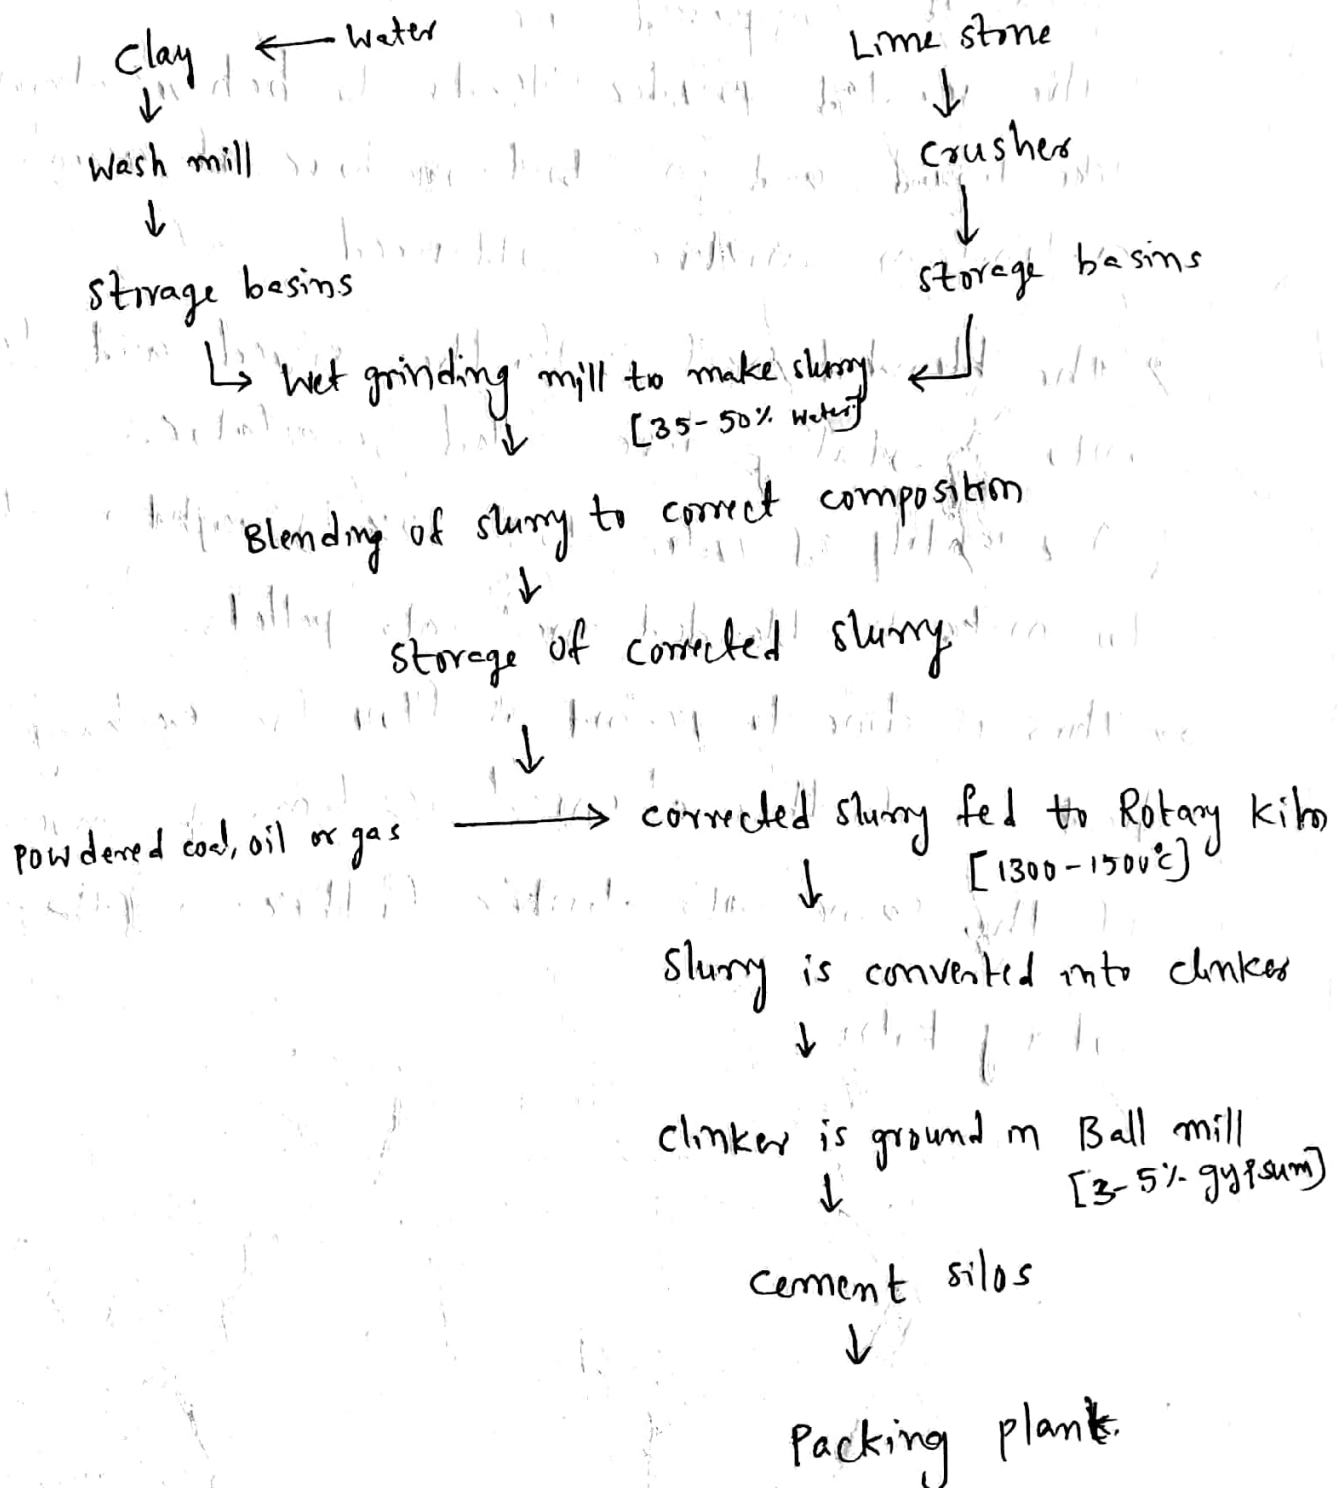 Clay ← Water
Lime stone
↓
↓
Wash mill
Crusher
↓
↓
Storage basins
storage basins
↳ Wet grinding mill to make slurry ↵
[35-50% water]
↓
Blending of slurry to correct composition
↓
Storage of corrected slurry
↓
Powdered coal, oil or gas → corrected slurry fed to Rotary kiln
[1300-1500°c]
↓
Slurry is converted into clinker
↓
Clinker is ground in Ball mill
[3-5% gypsum]
↓
Cement silos
↓
Packing plant.